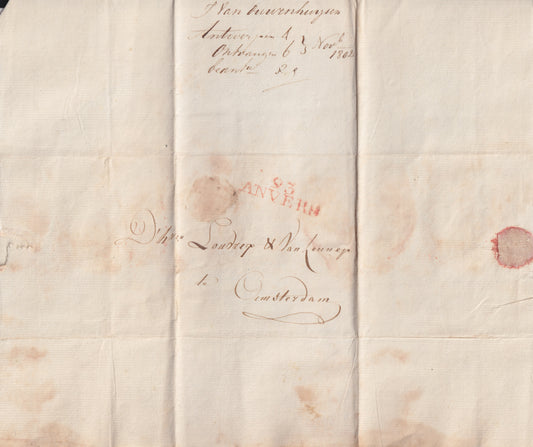 J Van Ouwenhuysen
Antwerpen 4
Ontvangen 6 } Novb
1802
beantw 8
93
ANVERS
D'hren Loudeep & Van Lennep
te
Amsterdam